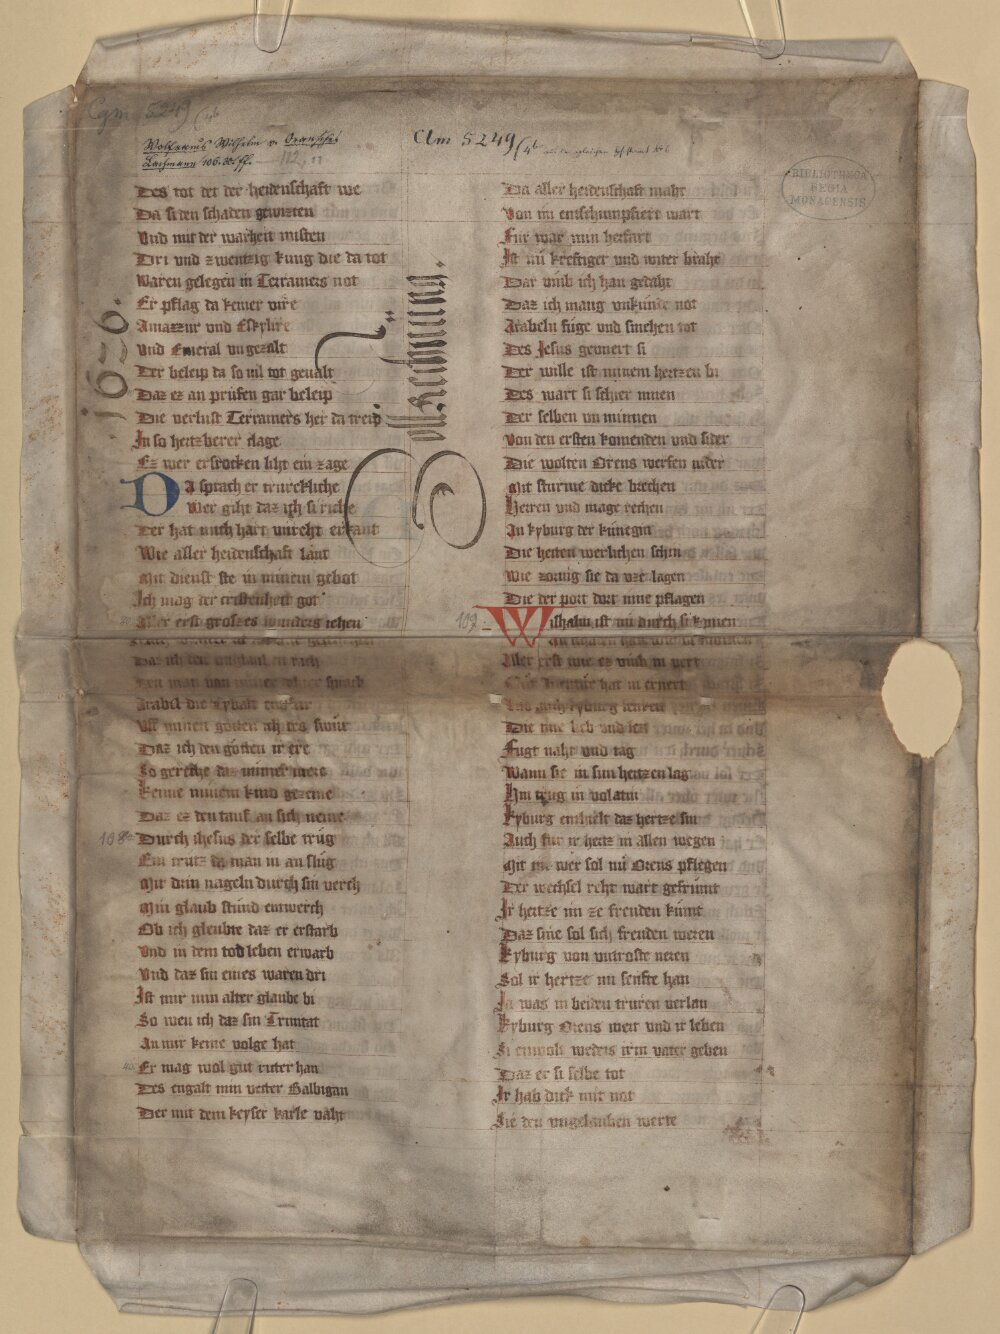 Cgm 5249/4b
Wolframs Wilhelm v. Oransches
Lachmann 106. 30 ff. 112. 11
Clm 5249/4b
BIBLIOTHECA
REGIA
MONACENSIS
1636.
Zoll Rechnung.
Des tot det der heidenschaft we
Da si den schaden gewizten
Vnd mit der warheit misten
Dri vnd zwentzig kung die da tot
Waren gelegen in Terramers not
Er pflag da keiner vire
Amazzur vnd Eskylire
Vnd Emeral vngezalt
Der beleip da so uil tot geualt
Daz ez an prüfen gar beleip
Die verlust Terramers her da treip
In so hertzberer clage
Ez wer ersrocken liht ein zage
DA sprach er trurekliche
Wer giht daz ich si riche
Der hat mich hart vnreht erkant
Wie aller heidenschaft lant
Mit dienst ste in minem gebot
Ich mag der cristenheit got
Aller erst grosses wunders iehen
Daz ich den
Arabel die
Vf minen götten ab des swür
Daz ich den götten ir ere
So gereche daz nimer mere
Keime minem kind gezeme
Daz ez den tauf an sich neme
108
Durch ihesus der selbe trüg
Ein crutz da man in an slüg
Mit drin nageln durch sin verch
Min glaub stünd entwerch
Ob ich gleubte daz er erstarb
Vnd in dem tod leben erwarb
Vnd daz sin eines waren dri
Ist mir min alter glaube bi
So wen ich daz sin Trinitat
An mir keine volge hat
40
Er mag wol gut riter han
Des engalt min vetter Balbigan
Der mit dem keyser karle vaht
Da aller heidenschaft maht
Von im entschumpfiert wart
Für war min herfart
Ist nü kreftiger vnd witer braht
Dar vmb ich han gedaht
Daz ich manig vnkunde not
Arabeln füge vnd smehen tot
Des Jesus geunert si
Der wille ist minem hertzen bi
Des wart si schier innen
Der selben vn minnen
Von den ersten komenden vnd sider
Die wolten Orens werfen nider
Mit sturme dicke brechen
Herren vnd mage rechen
An kyburg der künegin
Die heiten werlichen schin
Wie zornig sie da vze lagen
Die der port dort inne pflagen
109
Wishalm ist nü durch si komen
Aller erst wie ez vmb in vert
hat in ernert
Die sine lieb vnd ir
Fugt naht vnd tag
Wann sie in sim hertzen lag
Hin trug in volatin
Kyburg enthielt daz hertze sin
Auch für ir hertz in allen wegen
Mit im wer sol nü Orens pflegen
Der wechsel reht wart gefrümt
Ir hertze im ze freuden kümt
Daz sine sol sich freuden weren
Kyburg von vntroste neren
Sol ir hertze im senfte han
Ja was in beiden truren verlan
Kyburg Orens weit vnd ir leben
Si enwolt weders irm vater geben
Daz er si selbe tot
Ir hab dick mit not
Sie den vngelauben werte